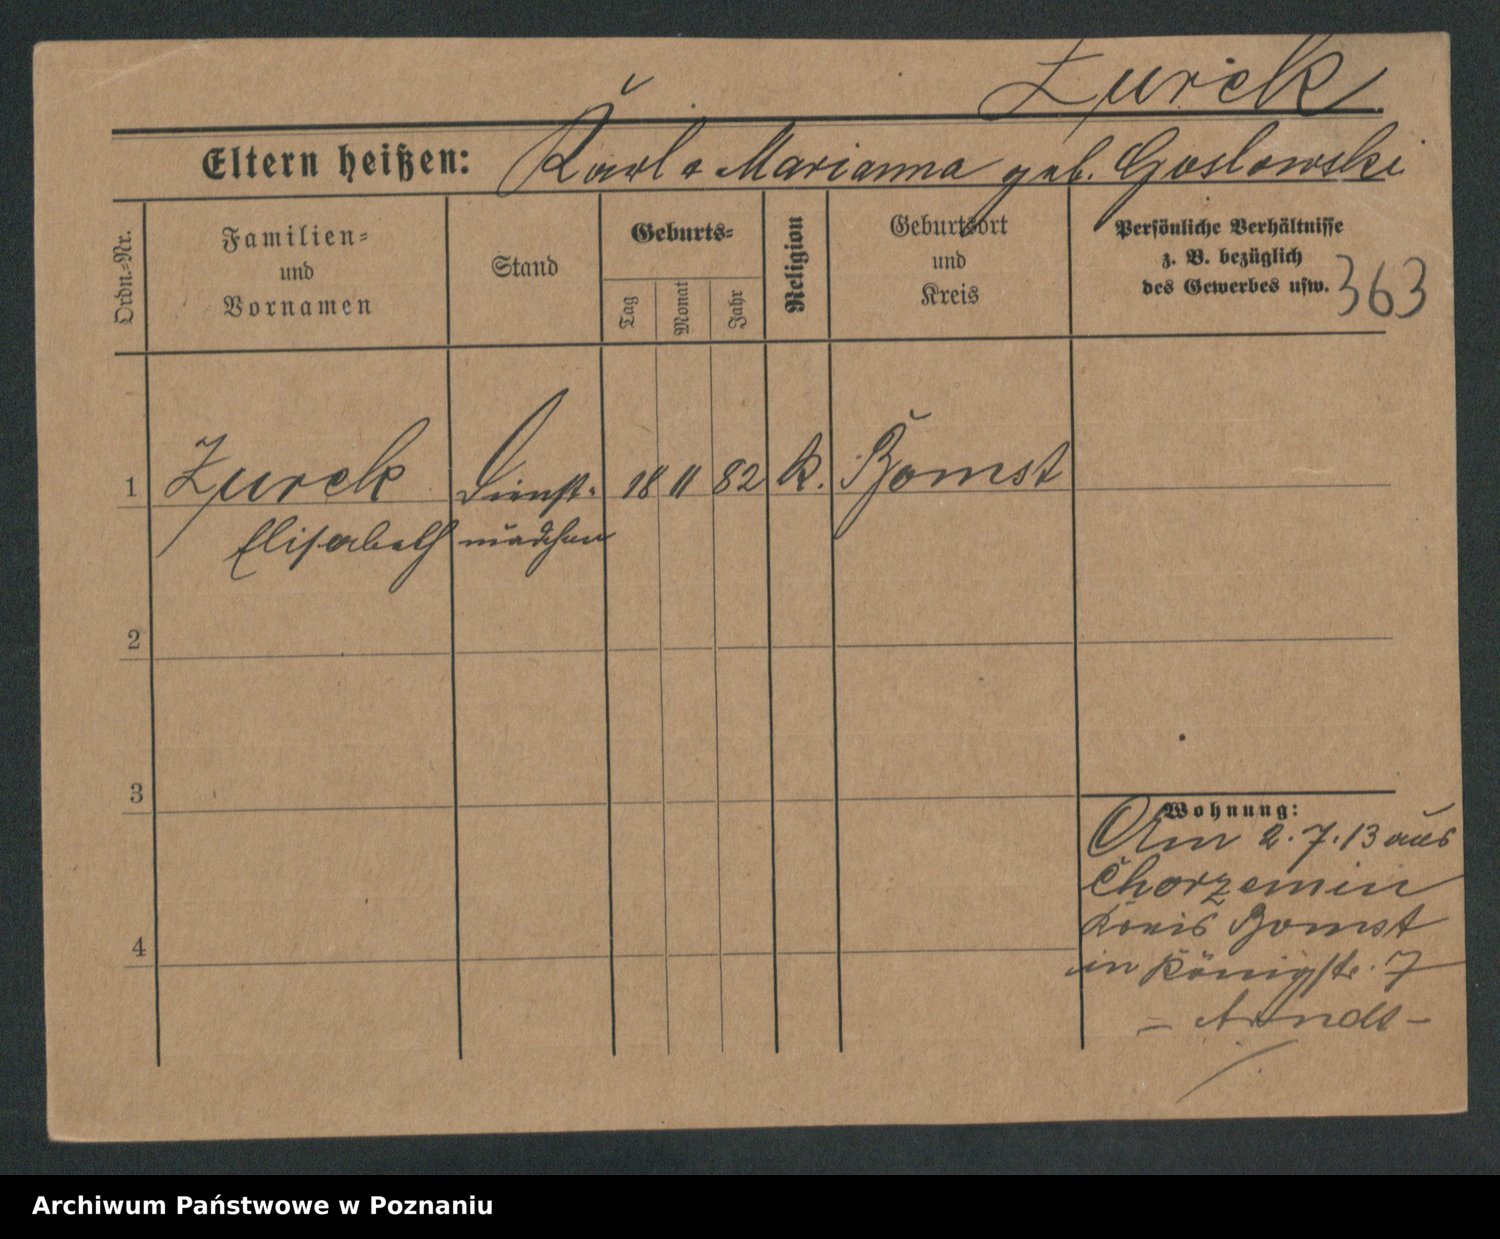 Zurek
Eltern heißen: Karl & Marianna geb. Goslowski
Ordn.-Nr.
Familien-
und
Vornamen
Stand
Geburts-
Tag
Monat
Jahr
Religion
Geburtsort
und
Kreis
Persönliche Verhältnisse
z. B. bezüglich
des Gewerbes usw.
363
1 Zurek Dienst- 18 11 82 k. Bomst
Elisabeth mädchen
2
3
Wohnung:
Am 2.7.13 aus
Chorzemin
Kreis Bomst
in Königstr. 7
4
- Arndt -
Archiwum Państwowe w Poznaniu